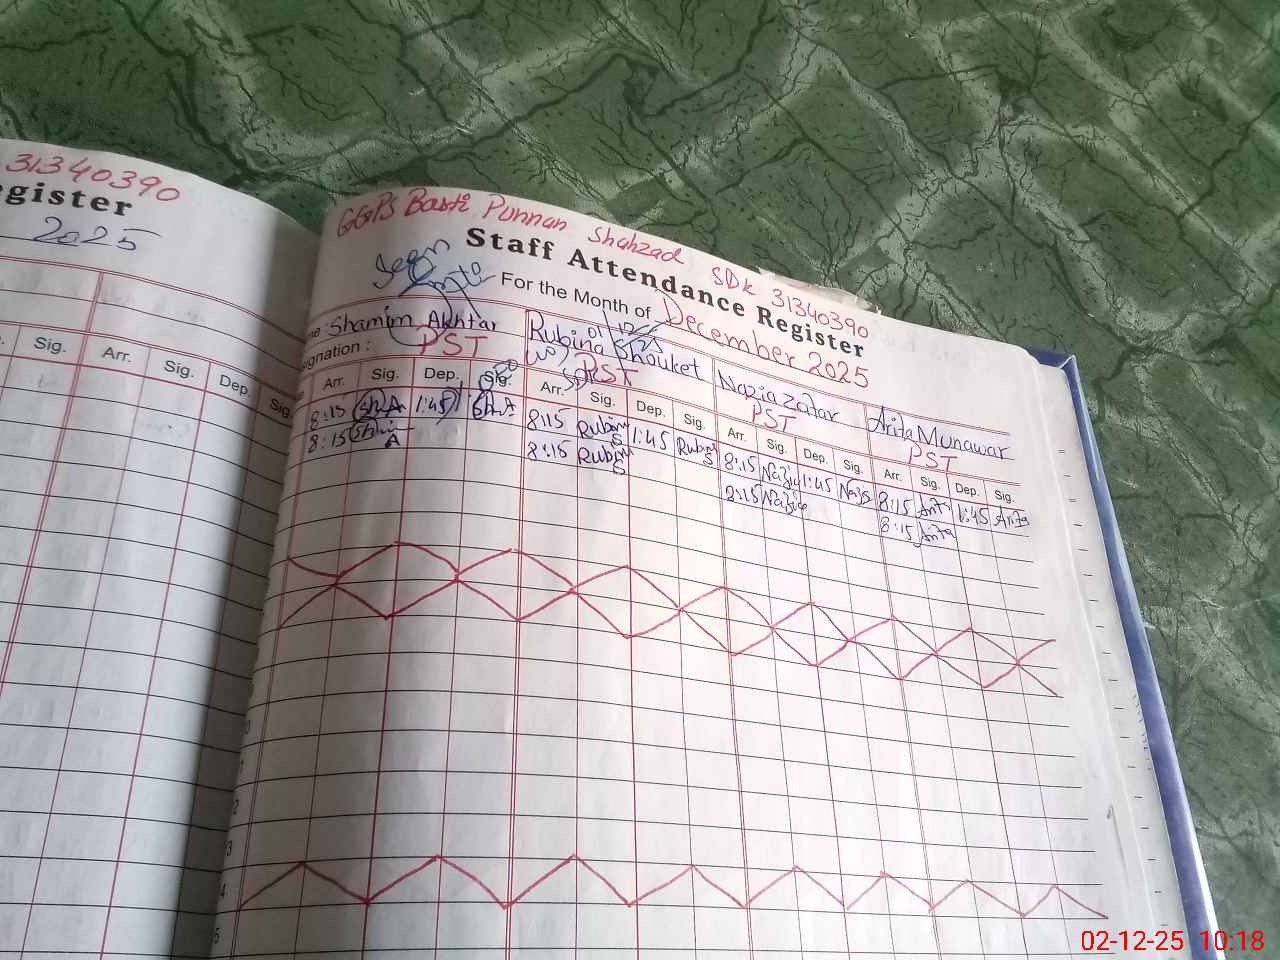 31340390
egister
2025
Sig. Arr. Sig. Dep. Sig.
GGPS Basti Punnan Shahzad SDK 31340390
Staff Attendance Register
Seen
For the Month of December 2025
me : Shamim Akhtar Rubina Shouket Nazia Zafar Arifa Munawar
signation : PST PST PST PST
Arr. Sig. Dep. Sig. Arr. Sig. Dep. Sig. Arr. Sig. Dep. Sig. Arr. Sig. Dep. Sig.
8:15 ShA 1:45 ShA 8:15 Rubina S 1:45 Rubina S 8:15 Nazia 1:45 Nazia 8:15 Arifa 1:45 Arifa
8:15 Sha A 8:15 Rubina S 8:15 Nazia 8:15 Arifa
2
3
4
5
02-12-25 10:18